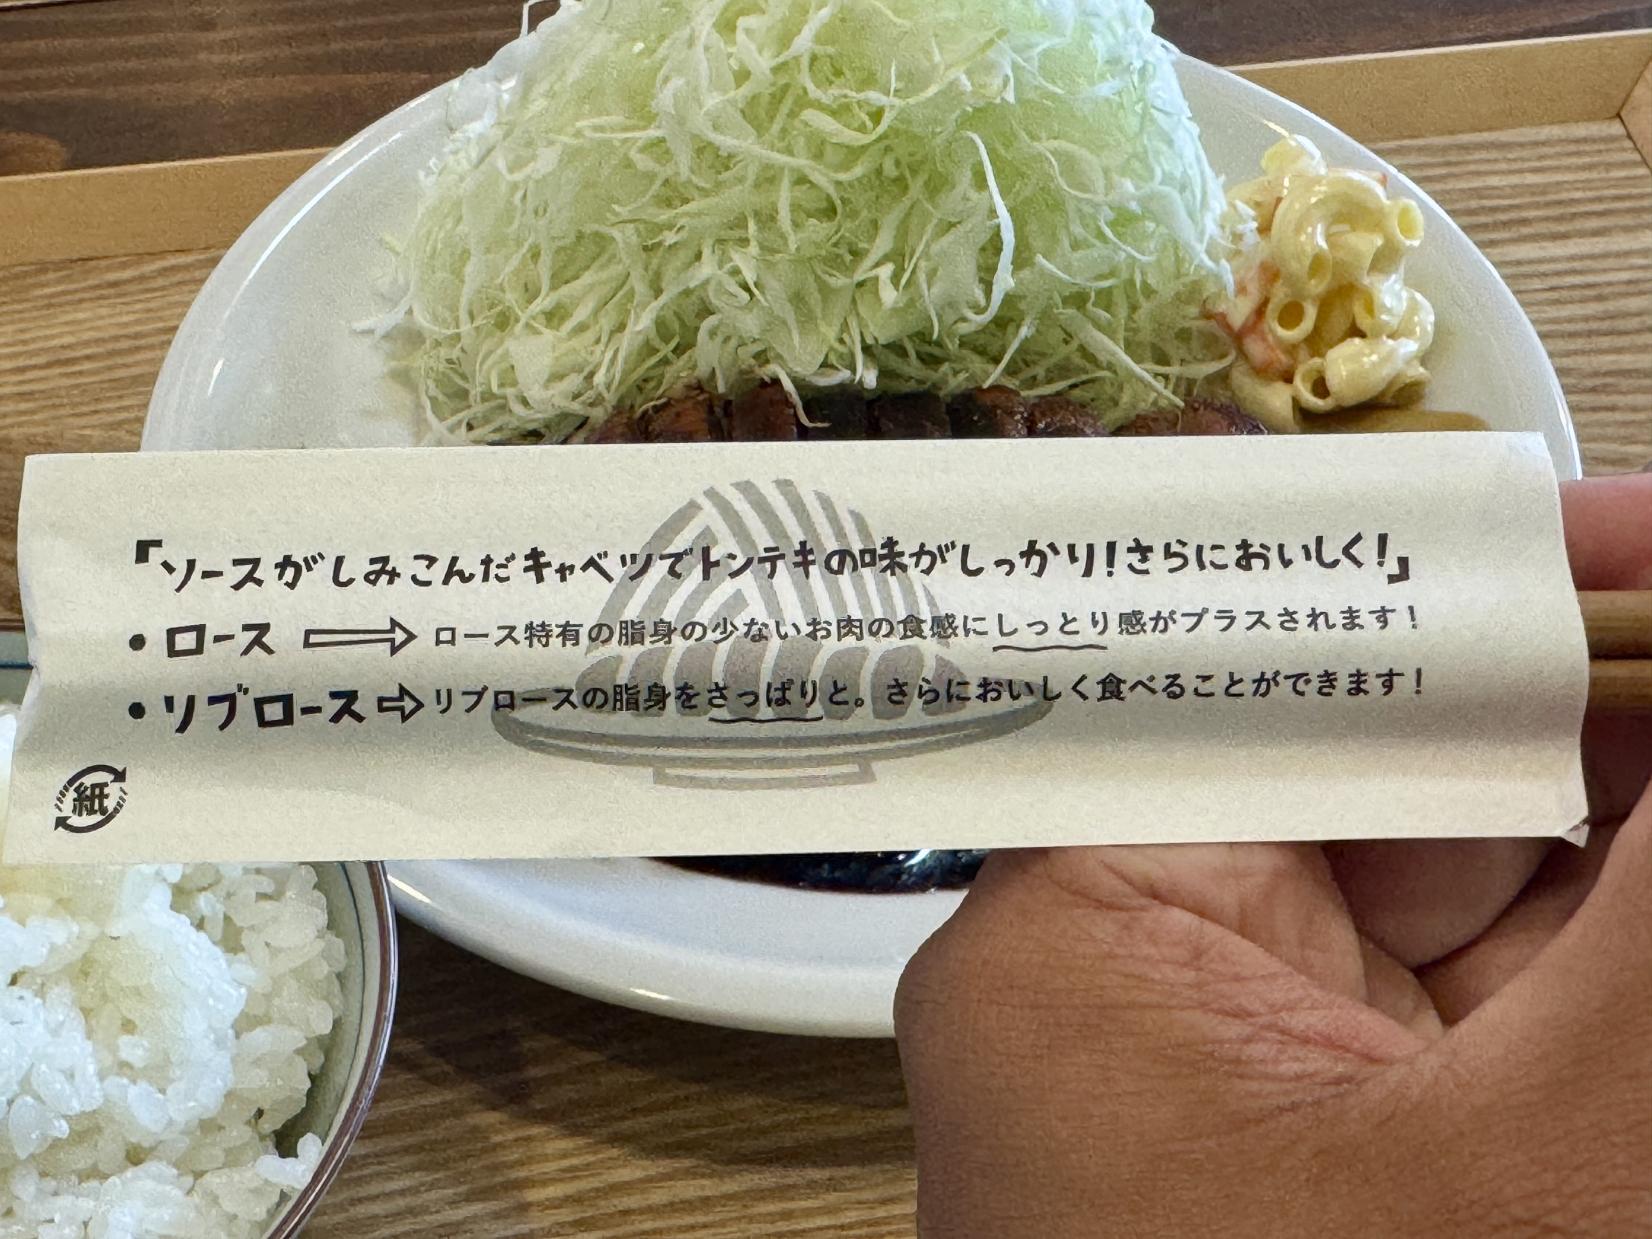 『ソースがしみこんだキャベツでトンテキの味がしっかり！さらにおいしく！』
・ロース ⇨ ロース特有の脂身の少ないお肉の食感にしっとり感がプラスされます！
・リブロース ⇨ リブロースの脂身をさっぱりと。さらにおいしく食べることができます！
紙